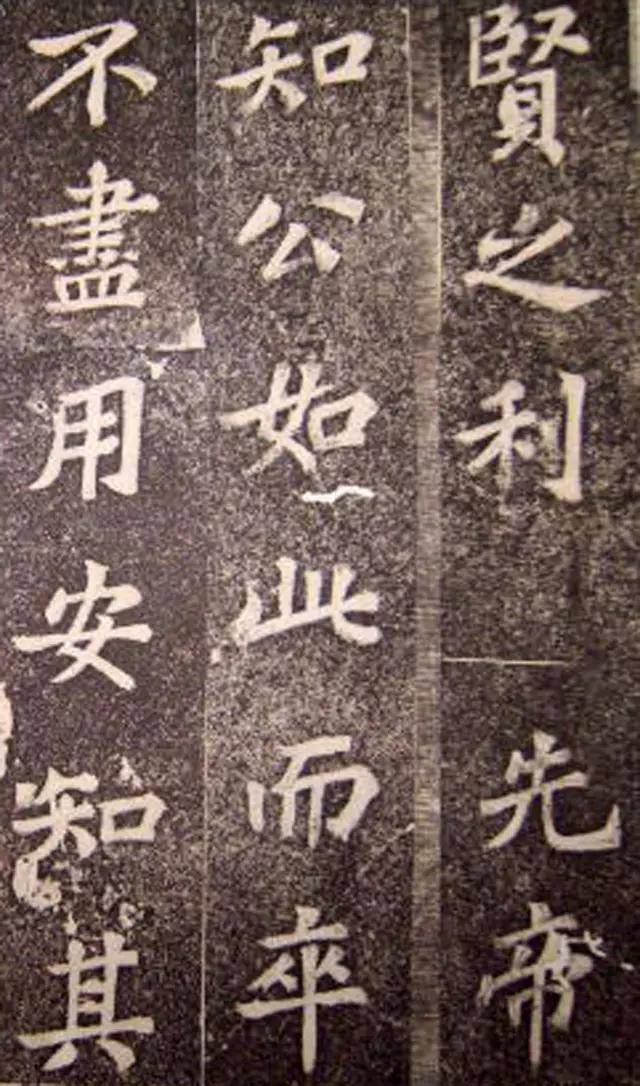 賢之利 先帝
知公如此而卒
不盡用安知其